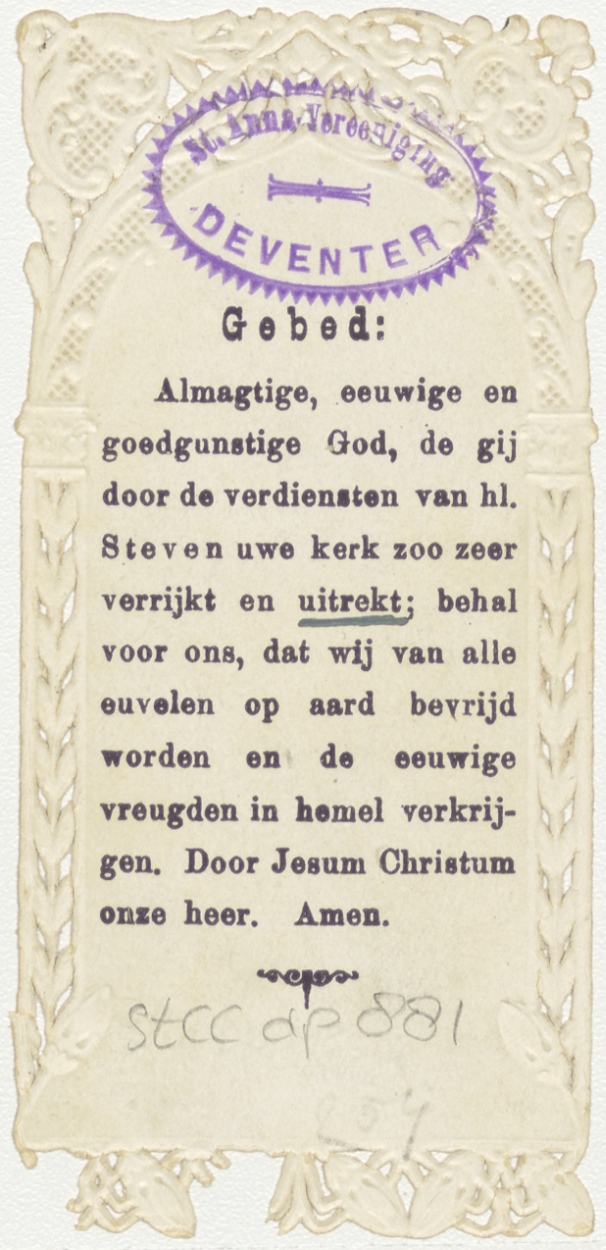 St. Anna-Vereeniging
DEVENTER
Gebed:
Almagtige, eeuwige en
goedgunstige God, de gij
door de verdiensten van hl.
Steven uwe kerk zoo zeer
verrijkt en uitrekt; behal
voor ons, dat wij van alle
euvelen op aard bevrijd
worden en de eeuwige
vreugden in hemel verkrij-
gen. Door Jesum Christum
onze heer. Amen.
StCC dp 881